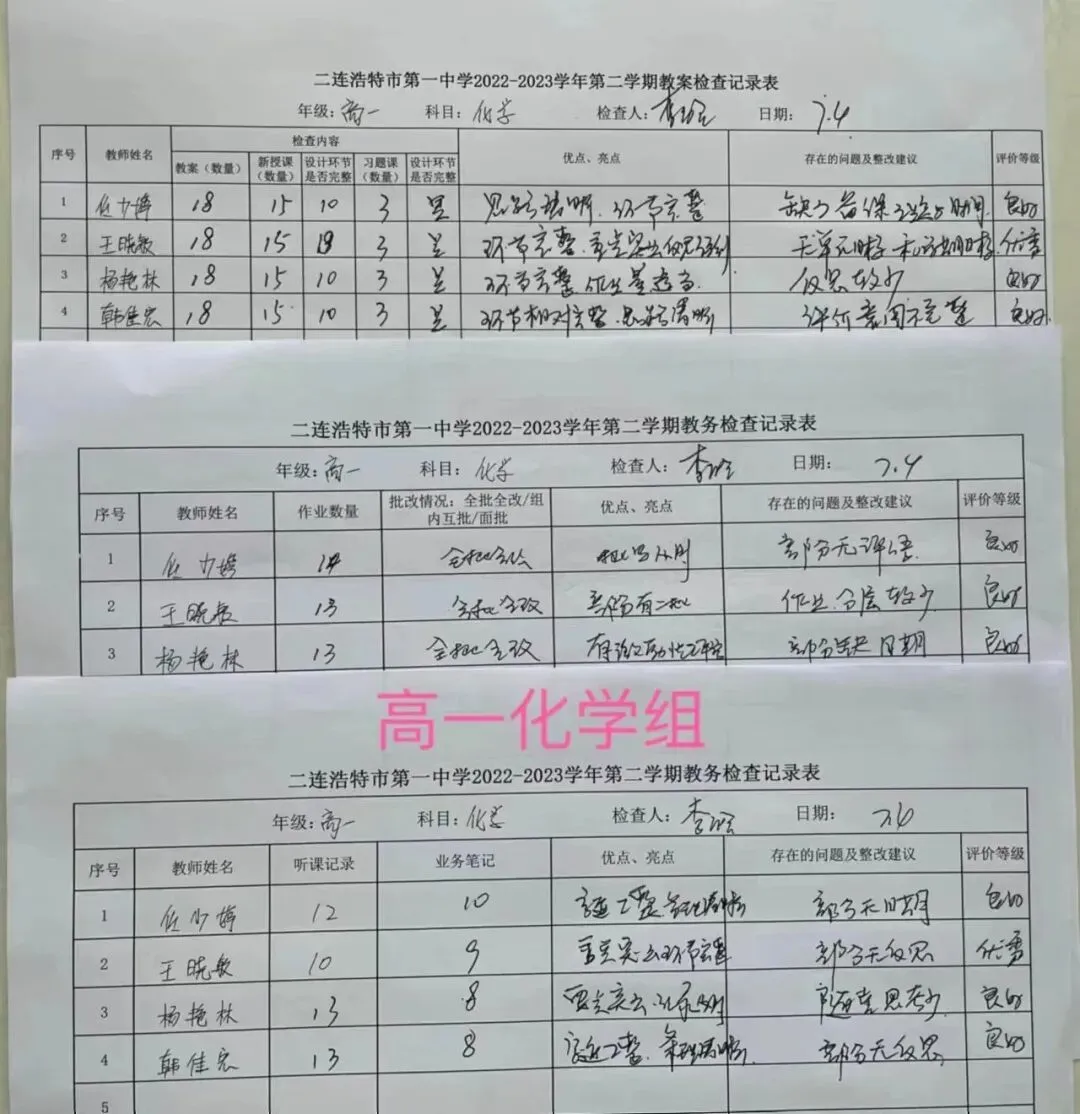 二连浩特市第一中学2022-2023学年第二学期教案检查记录表
年级：高一 科目：化学 检查人：李 日期：7.4
序号 教师姓名 检查内容 优点、亮点 存在的问题及整改建议 评价等级
教案（数量） 新授课（数量） 设计环节是否完整 习题课（数量） 设计环节是否完整
1 任少婷 18 15 10 3 是 思路清晰、环节完整 缺少备课 时间 良好
2 王晓敏 18 15 3 是 环节完整、重点突出 无单元时 优秀
3 杨艳林 18 15 10 3 是 环节完整、作业量适当 反思较少 良好
4 韩佳宏 18 15 10 3 是 环节相对完整、思路清晰 评价 不完整 良好
二连浩特市第一中学2022-2023学年第二学期教务检查记录表
年级：高一 科目：化学 检查人：李 日期：7.4
序号 教师姓名 作业数量 批改情况：全批全改/组内互批/面批 优点、亮点 存在的问题及整改建议 评价等级
1 任少婷 14 全批全改 部分无评语 良好
2 王晓敏 13 全批全改 部分有二批 作业分层较少 良好
3 杨艳林 13 全批全改 部分缺日期 良好
高一化学组
二连浩特市第一中学2022-2023学年第二学期教务检查记录表
年级：高一 科目：化学 检查人：李 日期：
序号 教师姓名 听课记录 业务笔记 优点、亮点 存在的问题及整改建议 评价等级
1 任少婷 12 10 部分无日期 良好
2 王晓敏 10 9 重点突出环节完整 部分无反思 优秀
3 杨艳林 13 8 良好
4 韩佳宏 13 8 条理清晰 部分无反思 良好
5